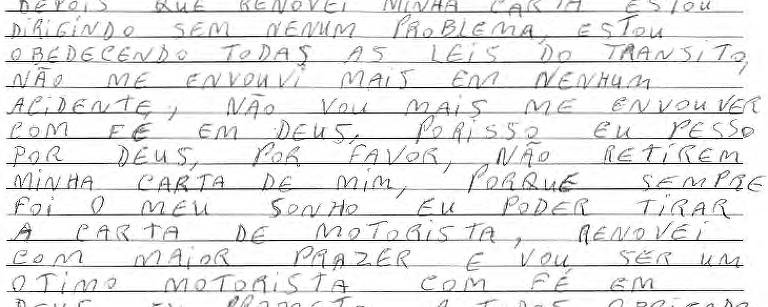 DEPOIS QUE RENOVEI MINHA CARTA ESTOU
DIRIGINDO SEM NENUM PROBLEMA, ESTOU
OBEDECENDO TODAS AS LEIS DO TRANSITO,
NÃO ME ENVOUVI MAIS EM NENHUM
ACIDENTE, NÃO VOU MAIS ME ENVOUVER
COM FÉ EM DEUS, PORISSO EU PESSO
POR DEUS, POR FAVOR, NÃO RETIREM
MINHA CARTA DE MIM, PORQUE SEMPRE
FOI O MEU SONHO EU PODER TIRAR
A CARTA DE MOTORISTA, RENOVEI
COM MAIOR PRAZER E VOU SER UM
OTIMO MOTORISTA COM FÉ EM
DEUS EU PROMETO A TODOS